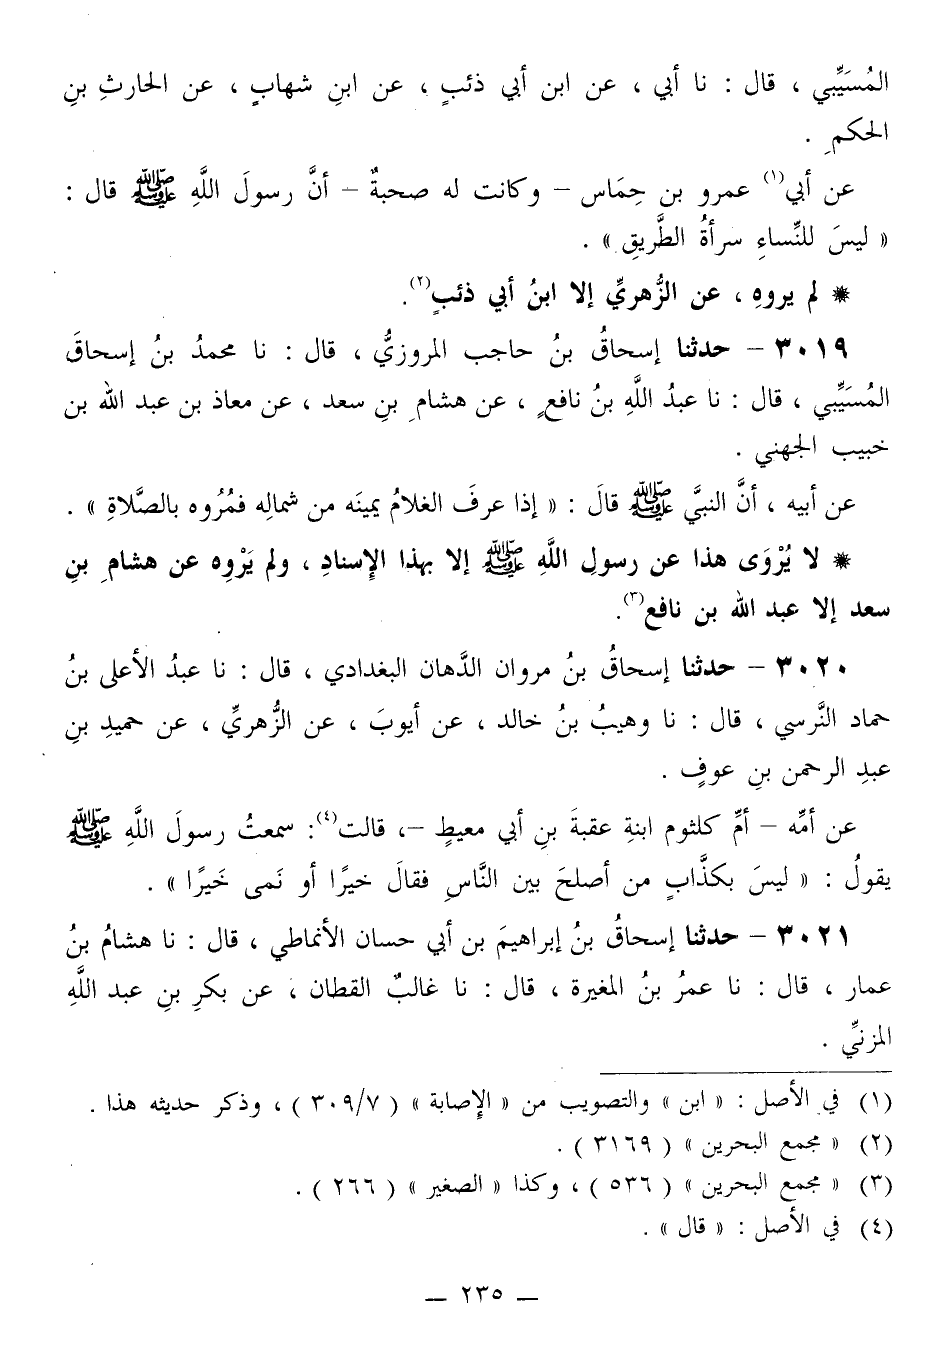 المُسَيِّبي ، قال : نا أبي ، عن ابن أبي ذئبٍ ، عن ابنِ شهابٍ ، عن الحارثِ بنِ
الحكمِ .
عن أبي(١) عمرو بن حِمَاس – وكانت له صحبةٌ – أنَّ رسولَ اللَّهِ ﷺ قال :
« ليسَ للنِّساءِ سرأةُ الطَّريقِ » .
* لم يروهِ ، عن الزُّهريِّ إلا ابنُ أبي ذئبٍ(٢).
٣٠١٩ – حدثنا إسحاقُ بنُ حاجب المروزيُّ ، قال : نا محمدُ بنُ إسحاقَ
المُسَيِّبي ، قال : نا عبدُ اللَّهِ بنُ نافعٍ ، عن هشامِ بنِ سعد ، عن معاذ بن عبد الله بن
خبيب الجهني .
عن أبيه ، أنَّ النبيَّ ﷺ قالَ : « إذا عرفَ الغلامُ يمينَه من شمالِه فمُرُوه بالصَّلاةِ » .
* لا يُرْوَى هذا عن رسولِ اللَّهِ ﷺ إلا بهذا الإِسنادِ ، ولم يَرْوِه عن هشامِ بنِ
سعد إلا عبد الله بن نافع(٣).
٣٠٢٠ – حدثنا إسحاقُ بنُ مروان الدَّهان البغدادي ، قال : نا عبدُ الأعلى بنُ
حماد النَّرسي ، قال : نا وهيبُ بنُ خالد ، عن أيوبَ ، عن الزُّهريِّ ، عن حميدِ بنِ
عبدِ الرحمن بنِ عوفٍ .
عن أمِّه – أمِّ كلثوم ابنةِ عقبةَ بنِ أبي معيطٍ –، قالت(٤): سمعتُ رسولَ اللَّهِ ﷺ
يقولُ : « ليسَ بكذَّابٍ من أصلحَ بين النَّاسِ فقالَ خيرًا أو نَمى خَيرًا » .
٣٠٢١ – حدثنا إسحاقُ بنُ إبراهيمَ بن أبي حسان الأنماطي ، قال : نا هشامُ بنُ
عمار ، قال : نا عمرُ بنُ المغيرة ، قال : نا غالبٌ القطان ، عن بكرِ بنِ عبد اللَّهِ
المزنيِّ .
(١) في الأصل : « ابن » والتصويب من « الإِصابة » ( ٣٠٩/٧ ) ، وذكر حديثه هذا .
(٢) « مجمع البحرين » ( ٣١٦٩ ) .
(٣) « مجمع البحرين » ( ٥٣٦ ) ، وكذا « الصغير » ( ٢٦٦ ) .
(٤) في الأصل : « قال » .
— ٢٣٥ —